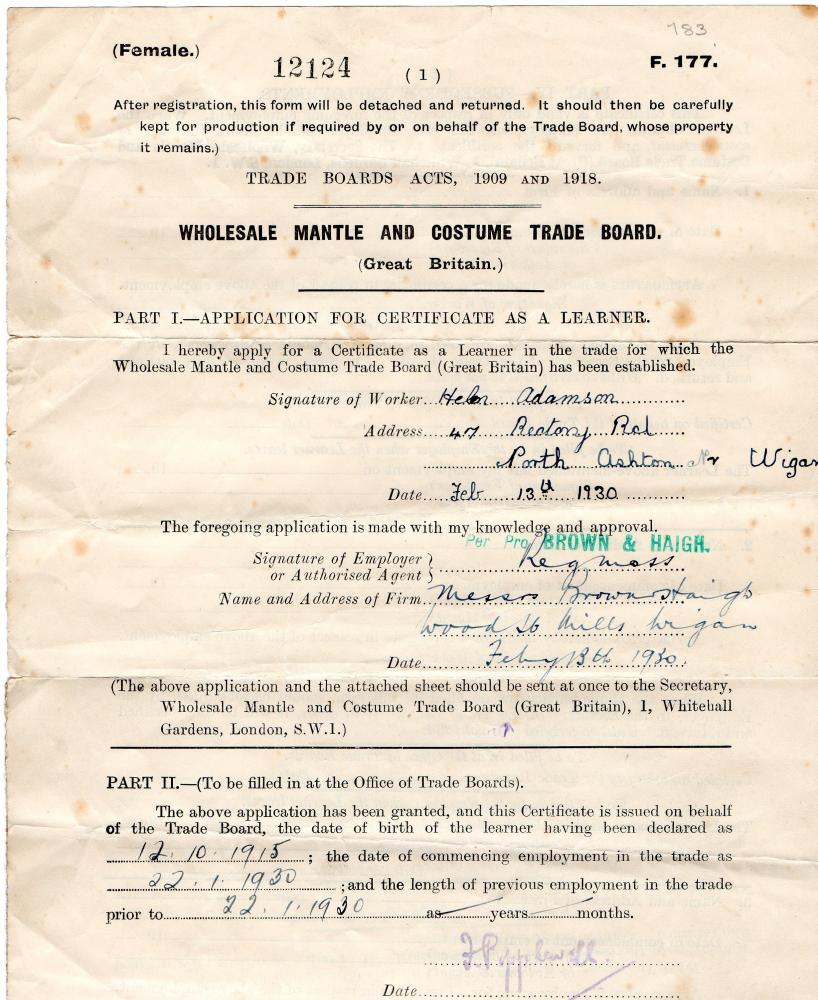 783
(Female.) 12124 (1) F. 177.
After registration, this form will be detached and returned. It should then be carefully
kept for production if required by or on behalf of the Trade Board, whose property
it remains.)
TRADE BOARDS ACTS, 1909 AND 1918.
WHOLESALE MANTLE AND COSTUME TRADE BOARD.
(Great Britain.)
PART I.—APPLICATION FOR CERTIFICATE AS A LEARNER.
I hereby apply for a Certificate as a Learner in the trade for which the
Wholesale Mantle and Costume Trade Board (Great Britain) has been established.
Signature of Worker Helen Adamson
Address 47 Rectory Rd
North Ashton Nr Wigan
Date Feb 13th 1930
The foregoing application is made with my knowledge and approval.
Per Pro BROWN & HAIGH.
Signature of Employer
or Authorised Agent } Reg Moss
Name and Address of Firm Messrs Brown & Haigh
Wood St Mills Wigan
Date Feby 13th 1930.
(The above application and the attached sheet should be sent at once to the Secretary,
Wholesale Mantle and Costume Trade Board (Great Britain), 1, Whitehall
Gardens, London, S.W.1.)
PART II.—(To be filled in at the Office of Trade Boards).
The above application has been granted, and this Certificate is issued on behalf
of the Trade Board, the date of birth of the learner having been declared as
12. 10. 1915 ; the date of commencing employment in the trade as
22. 1. 1930 ; and the length of previous employment in the trade
prior to 22. 1. 1930 as years months.
Date